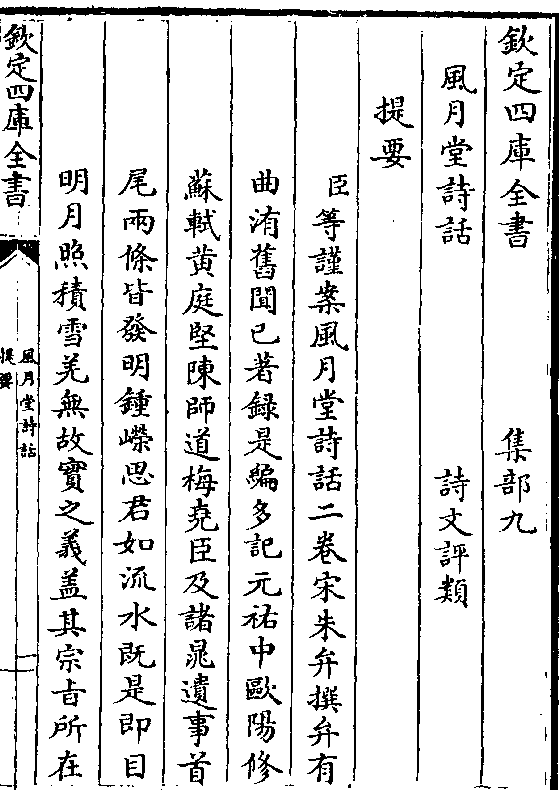 欽定四庫全書　集部九
風月堂詩話　詩文評類
提要
臣等謹案風月堂詩話二卷宋朱弁撰弁有
曲洧舊聞已著録是編多記元祐中歐陽修
蘇軾黄庭堅陳師道梅堯臣及諸晁遺事首
尾兩條皆發明鍾嶸思君如流水既是即目
明月照積雪羌無故實之義盖其宗㫖所在
欽定四庫全書
風月堂詩話
提要